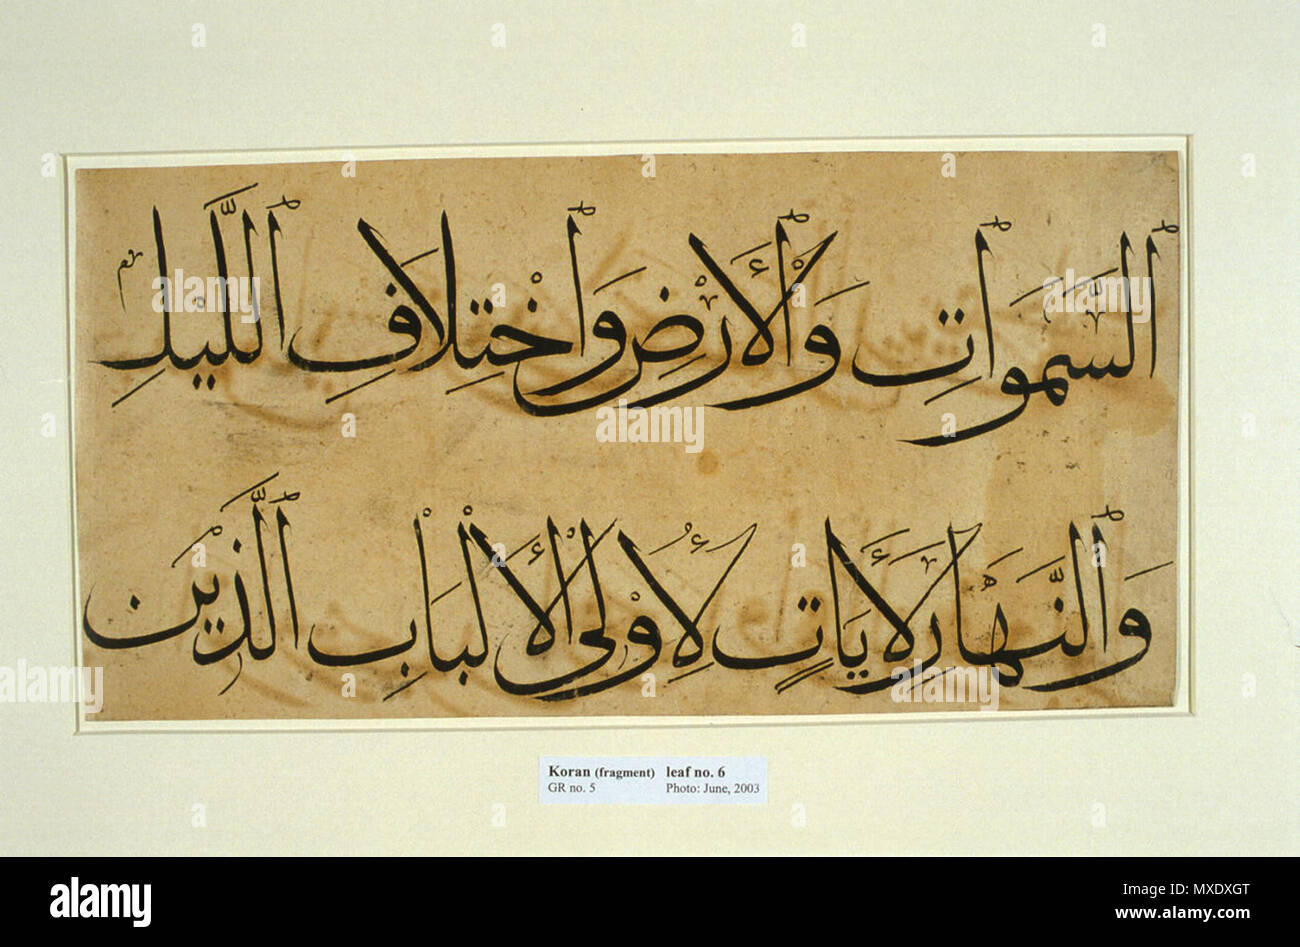 ٱلسَّمَوَٰاتِ وَٱلْأَرْضِ وَٱخْتِلَافِ ٱللَّيْلِ
وَٱلنَّهَارِ لَأَيَاتٍ لِأُوْلِى ٱلْأَلْبَابِ ٱلَّذِيْنَ
Koran (fragment) leaf no. 6
GR no. 5 Photo: June, 2003
alamy
Image ID: MXDXGT
www.alamy.com